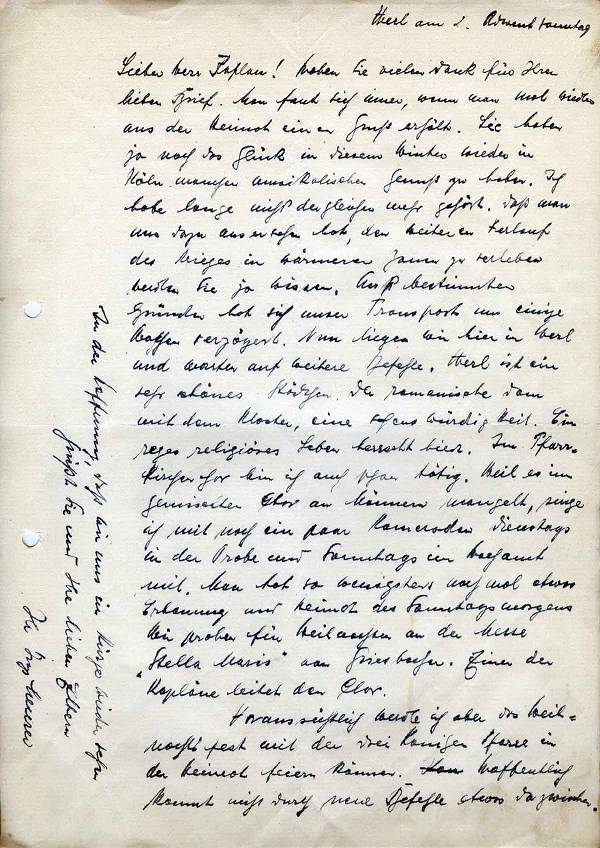 Werl am 2. Adventsonntag
Lieber Herr Kaplan! Haben Sie vielen Dank für Ihren
lieben Brief. Man freut sich immer, wenn man mal wieder
aus der Heimat einen Gruß erhält. Sie haben
ja noch das Glück in diesem Winter wieder in
Köln manchen musikalischen Genuß zu haben. Ich
habe lange nichts dergleichen mehr gehört. Daß man
uns dazu ausersehen hat, den weiteren Verlauf
des Krieges in wärmeren Zonen zu verleben
werden Sie ja wissen. Aus bestimmten
Gründen hat sich unser Transport um einige
Wochen verzögert. Nun liegen wir hier in Werl
und warten auf weitere Befehle. Werl ist ein
sehr schönes Städtchen. Der romanische Dom
mit dem Kloster, eine Sehenswürdigkeit. Ein
reges religiöses Leben herrscht hier. Im Pfarr-
kirchenchor bin ich auch schon tätig. Weil es im
gemischten Chor an Männern mangelt, singe
ich mit noch ein paar Kameraden Dienstags
in der Probe und Sonntags im Hochamt
mit. Man hat so wenigstens noch mal etwas
Erbauung und Heimat des Sonntagsmorgens
Wir proben für Weihnachten an der Messe
"Stella Maris" von Griesbacher. Einer der
Kapläne leitet den Chor.
Voraussichtlich werde ich aber das Weih=
nachtsfest mit der drei Königen Pfarre in
der Heimat feiern können. Hoffentlich
kommt nichts durch neue Befehle etwas dazwischen.
In der Hoffnung, daß wir uns in Kürze wieder sehen
grüßt Sie und Ihre lieben Eltern
Ihr